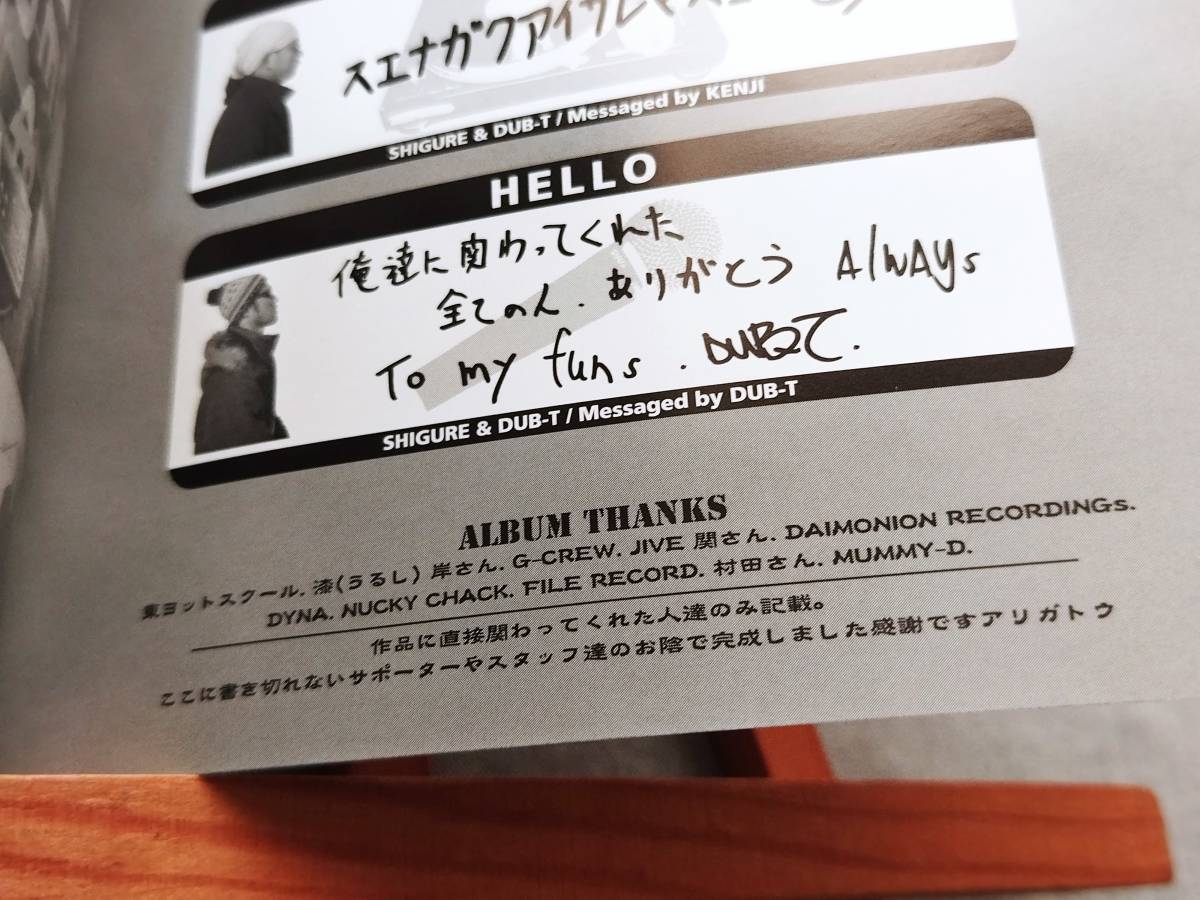 スエナガクアイシテマス
SHIGURE & DUB-T / Messaged by KENJI
HELLO
俺達に関わってくれた
全ての人.ありがとう AlwAys
To my funs. DUB2T.
SHIGURE & DUB-T / Messaged by DUB-T
ALBUM THANKS
東ヨットスクール. 漆(うるし) 岸さん. G-CREW. JIVE 関さん. DAIMONION RECORDINGs.
DYNA. NUCKY CHACK. FILE RECORD. 村田さん. MUMMY-D.
作品に直接関わってくれた人達のみ記載。
ここに書き切れないサポーターやスタッフ達のお陰で完成しました感謝ですアリガトウ